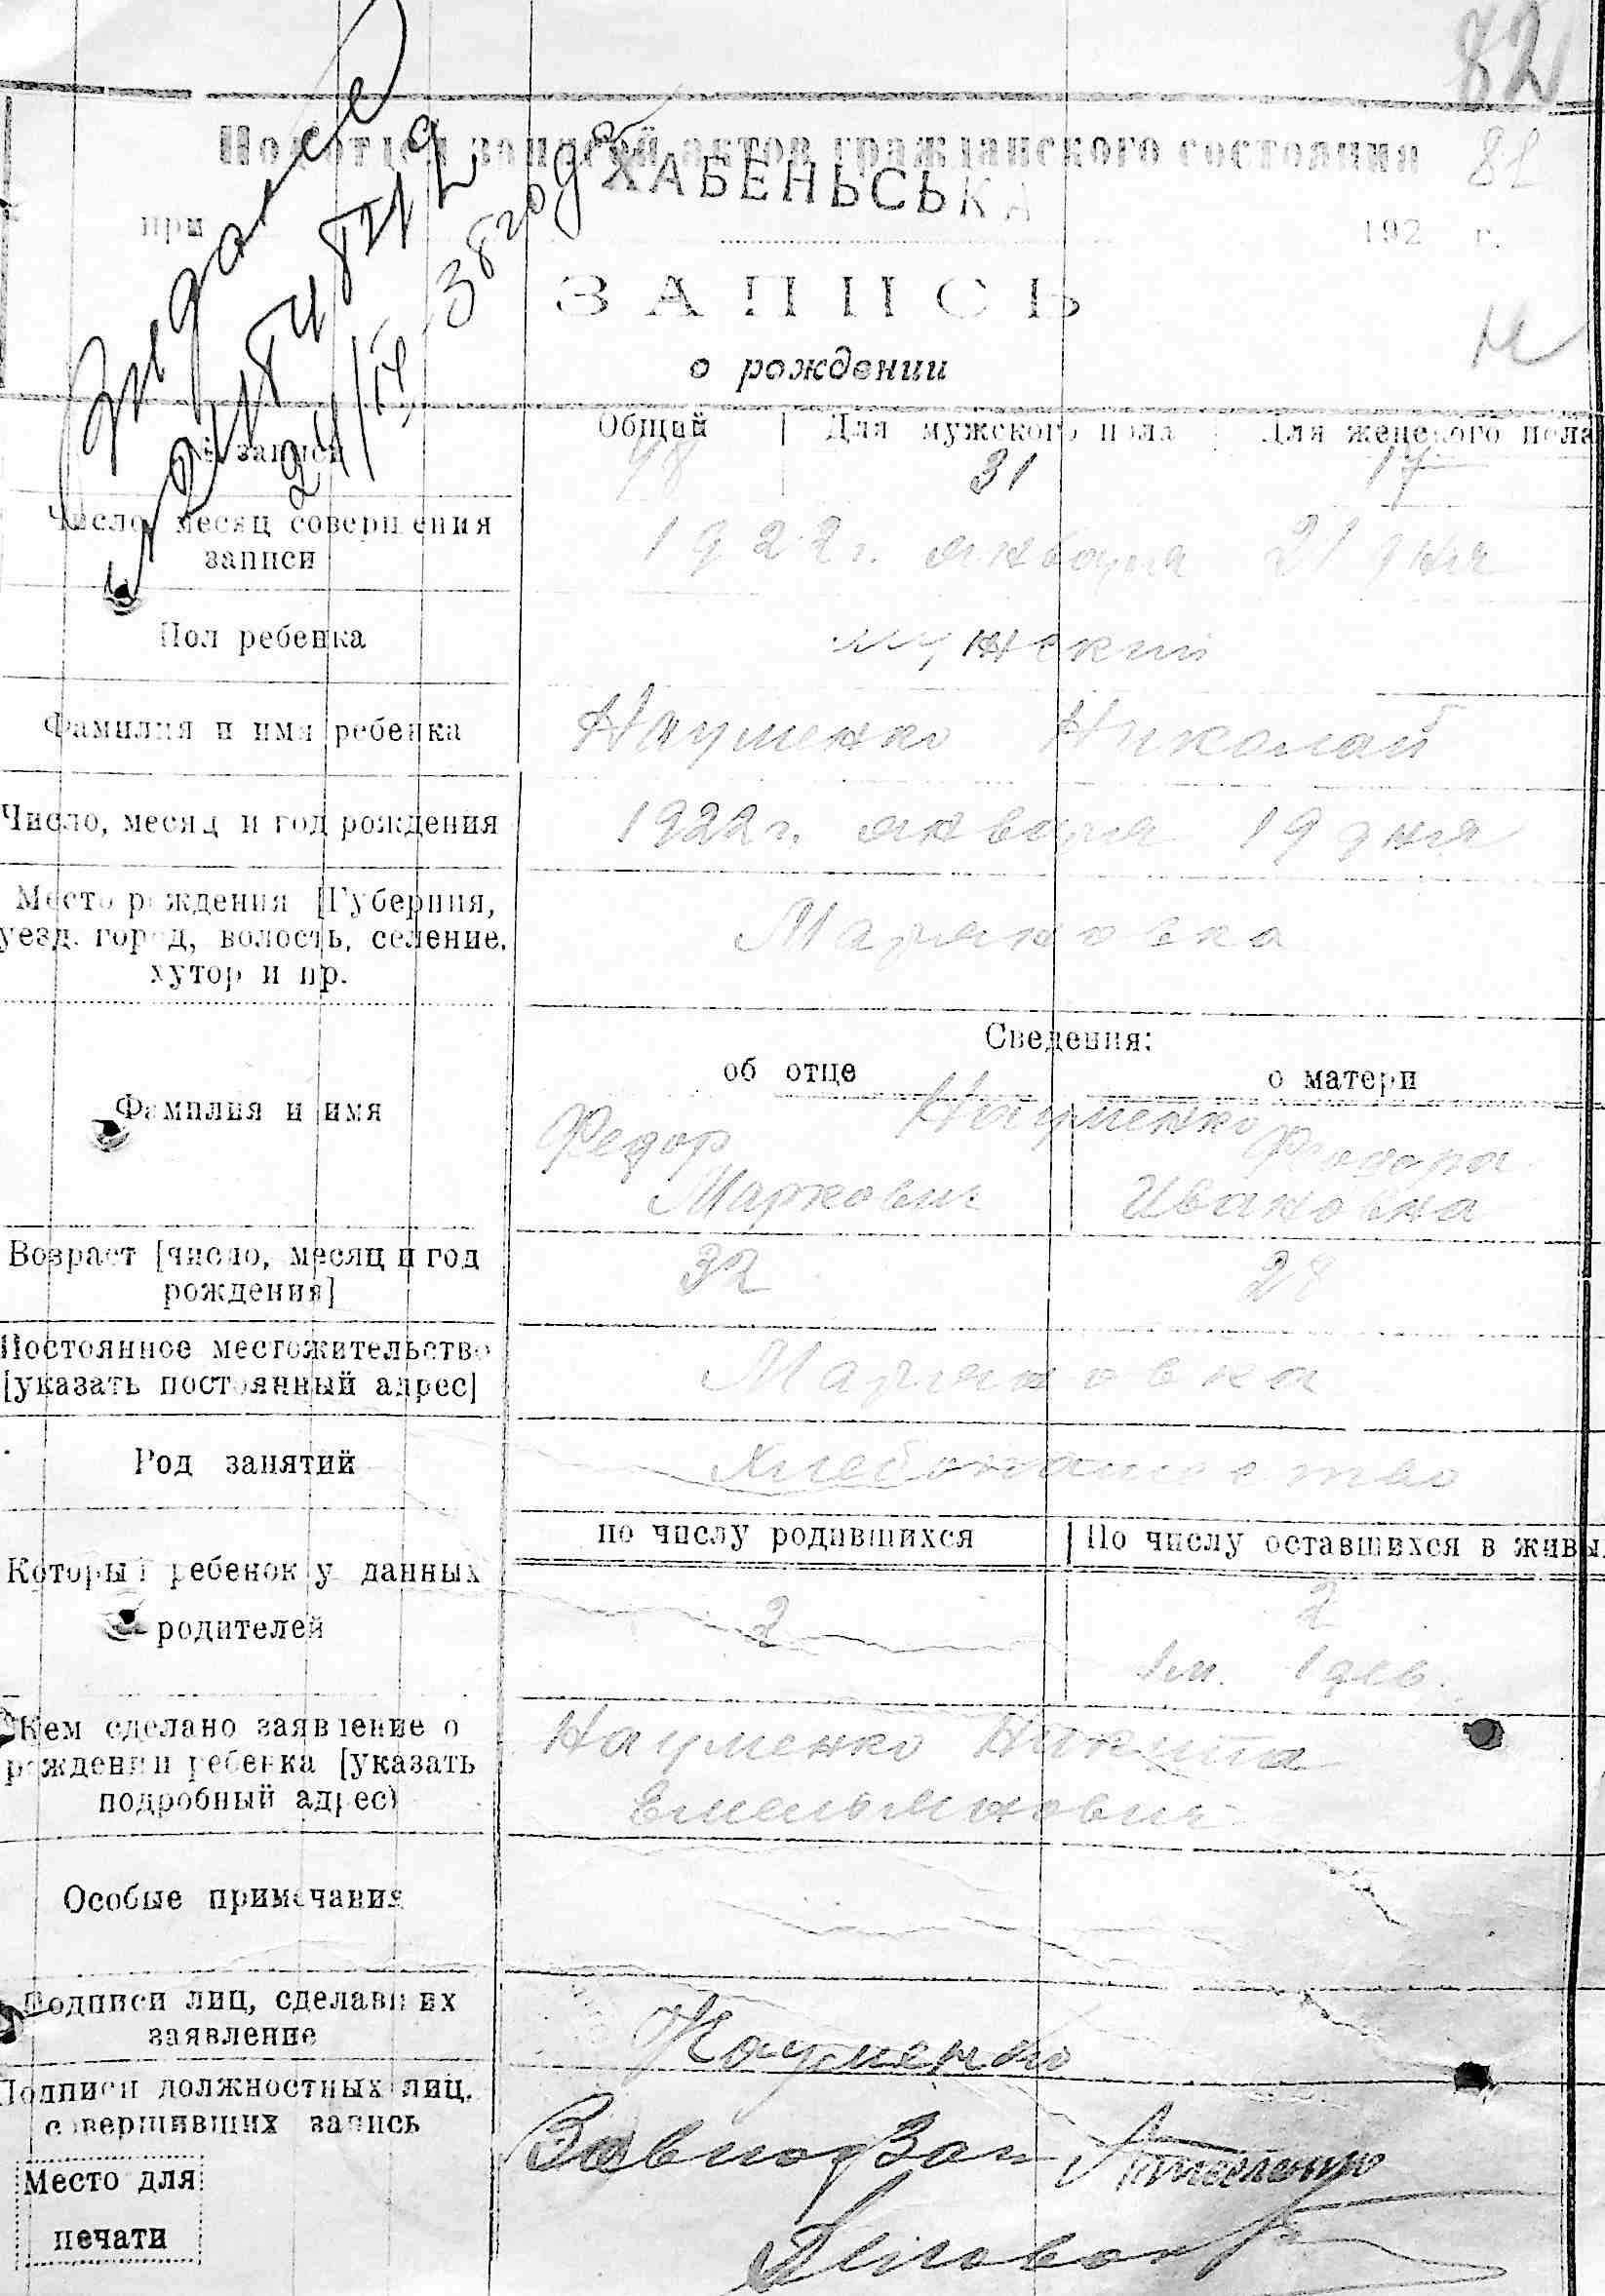 82
Подотдел записей актов гражданского состояния
81
ХАБЕНЬСЬКА
при
192 г.
ЗАПИСЬ
о рождении
№ записи
Общий Для мужского пола Для женского пола
48 31 17
Число, месяц совершения
записи
1922 г. января 21 дня
Пол ребенка
мужской
Фамилия и имя ребенка
Науменко Николай
Число, месяц и год рождения
1922 г. января 19 дня
Место рождения [Губерния,
уезд, город, волость, селение,
хутор и пр.
Марьяновка
Сведения:
об отце о матери
Фамилия и имя
Науменко
Федор
Маркович Ивановна
Возраст [число, месяц и год
рождения]
32 28
Постоянное местожительство
[указать постоянный адрес]
Марьяновка
Род занятий
хлебопашество
по числу родившихся По числу оставшихся в живы
Который ребенок у данных
родителей
2 2
1 м. 1 дев.
Кем сделано заявление о
рождении ребенка [указать
подробный адрес)
Науменко Никита
Емельянович
Особые примечания
Подписи лиц, сделавших
заявление
Науменко
Подписи должностных лиц,
совершивших запись
Место для
печати